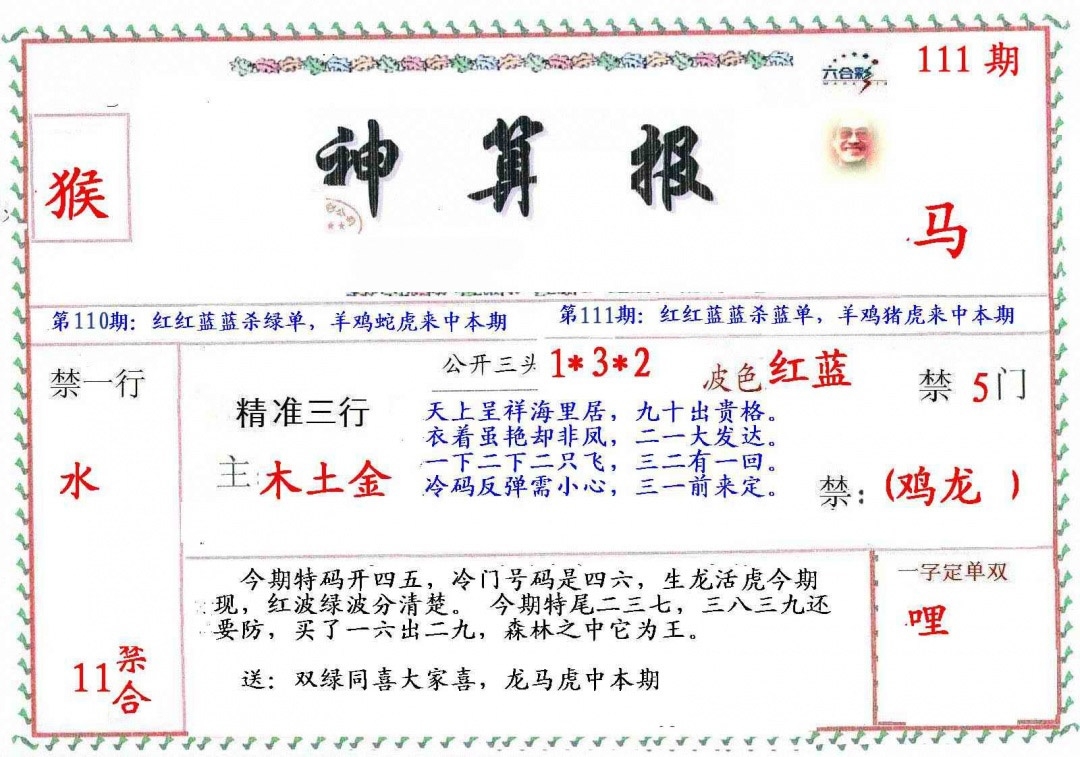 111 期
六合彩
神算报
猴
马
第110期：红红蓝蓝杀绿单，羊鸡蛇虎来中本期
第111期：红红蓝蓝杀蓝单，羊鸡猪虎来中本期
禁一行
水
11禁合
精准三行
主:木土金
公开三头 1*3*2
波色 红蓝
天上呈祥海里居，九十出贵格。
衣着虽艳却非凤，二一大发达。
一下二下二只飞，三二有一回。
冷码反弹需小心，三一前来定。
禁 5门
禁：(鸡龙 )
今期特码开四五，冷门号码是四六，生龙活虎今期
现，红波绿波分清楚。 今期特尾二三七，三八三九还
要防，买了一六出二九，森林之中它为王。
送：双绿同喜大家喜，龙马虎中本期
一字定单双
哩